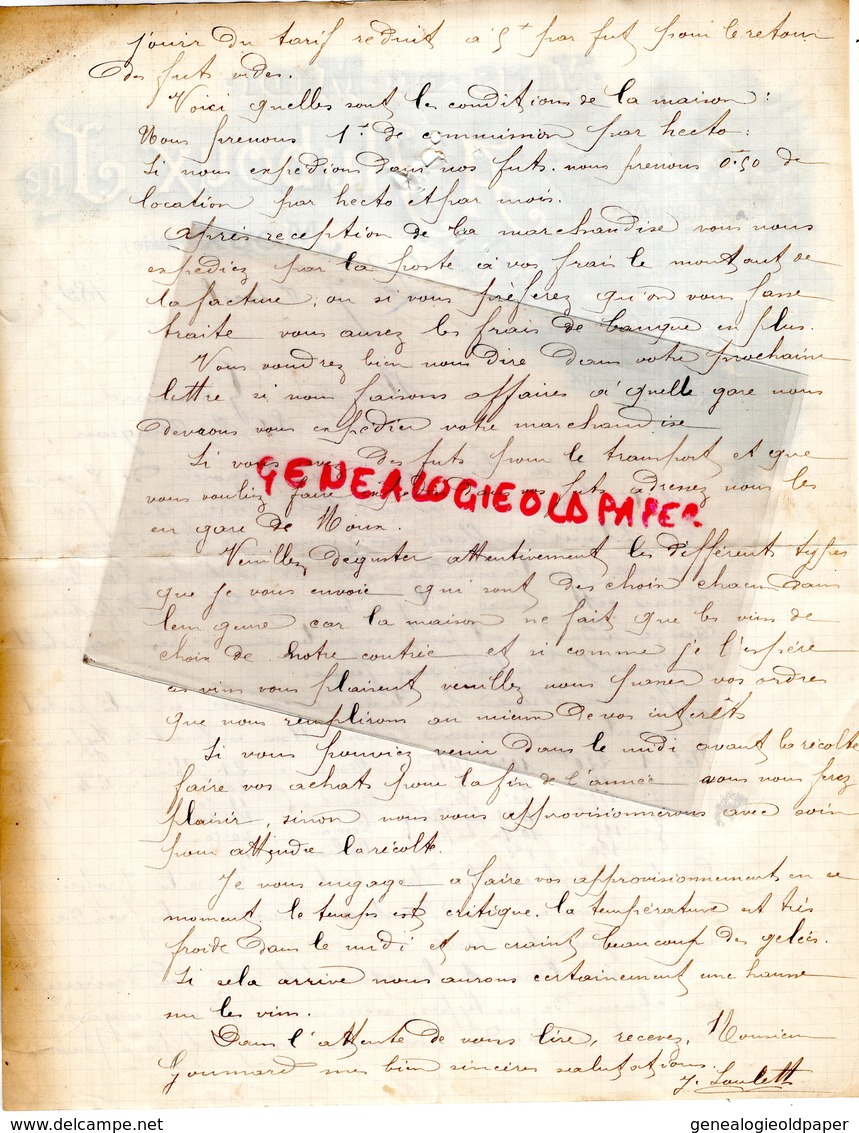 jouir du tarif réduit à 5f par fut pour le retour
des futs vides.
Voici quelles sont les conditions de la maison :
Nous prenons 1f. de commission par hecto :
Si nous expedions dans nos futs. nous prenons 0f50 de
location par hecto et par mois.
Après reception de la marchandise vous nous
expediez par la poste à vos frais le montant de
la facture ; ou si vous préferez qu'on vous fasse
traite vous aurez les frais de banque en plus.
Vous voudrez bien nous dire dans votre prochaine
lettre si nous faisons affaires à quelle gare nous
devrons vous expedier votre marchandise
Si vous avez des futs pour le transport et que
vous vouliez faire expedier dans vos futs adressez nous les
en gare de
GENEALOGIEOLDPAPER
Veuillez déguster attentivement les différents types
que je vous envoie qui sont des choix chacun dans
leur genre car la maison ne fait que les vins de
choix de notre contrée et si comme je l'espére
ces vins vous plaisent veuillez nous passer vos ordres
que nous remplirons au mieux de vos interêts
Si vous pouviez venir dans le midi avant la récolte
faire vos achats pour la fin de l'année vous nous ferez
plaisir, sinon nous vous approvisionnerons avec soin
pour attendre la récolte.
Je vous engage à faire vos approvisionnements en ce
moment. le temps est critique. la température est très
froide dans le midi et on craint beaucoup des gelées.
Si cela arrive nous aurons certainement une hausse
sur les vins.
Dans l'attente de vous lire, recevez, Monsieur
Goumard mes bien sincères salutations.
delcampe.net
genealogieoldpaper